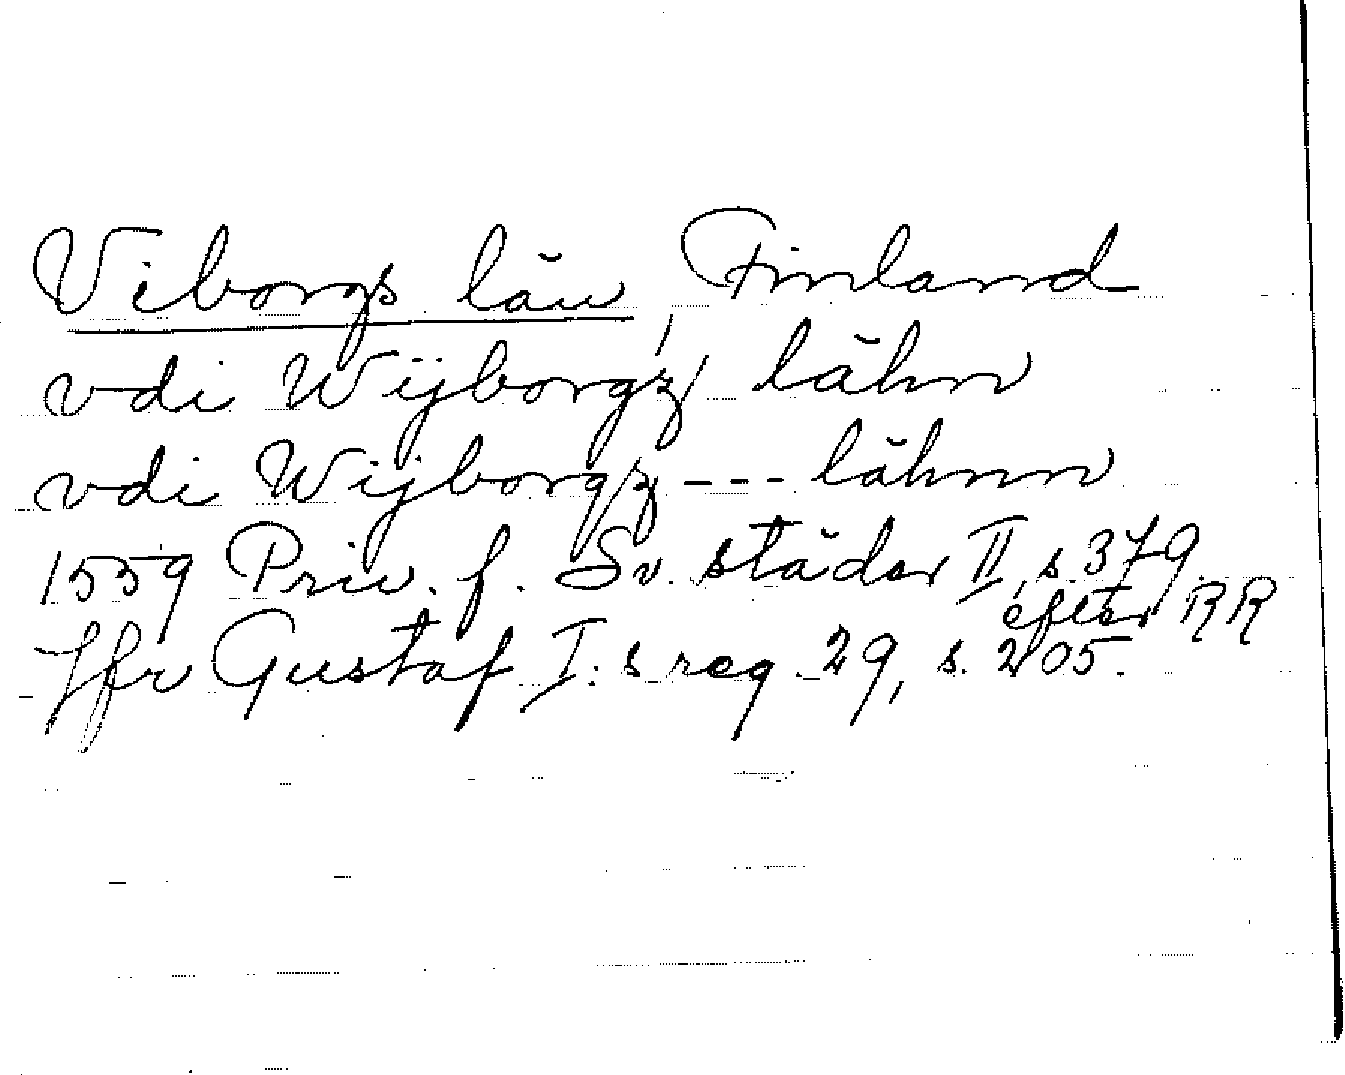 Viborgs län, Finland
vdi Wijborgz, lähn
vdi Wijborgz --- lähnn
1559 Priv. f. Sv. städer II, s. 379.
efter RR
Jfr Gustaf I:s reg. 29, s. 205.